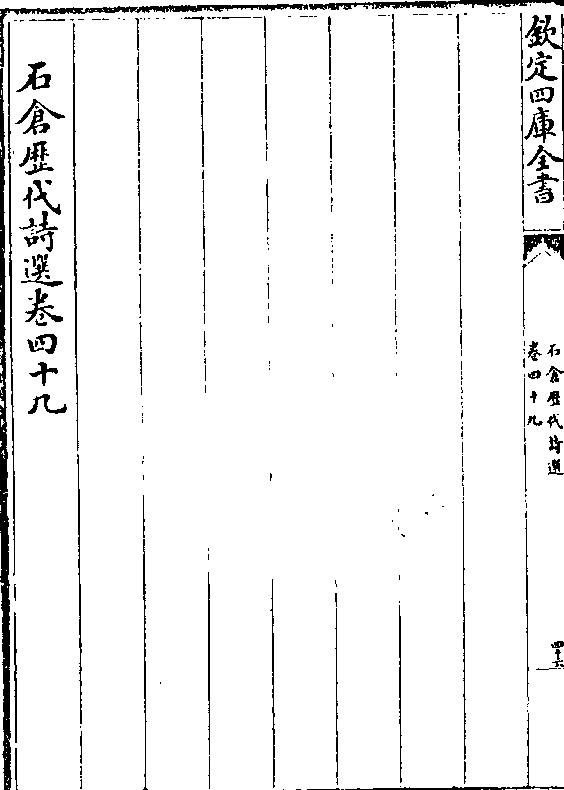 欽定四庫全書
石倉歷代詩選
卷四十九
四十六
石倉歷代詩選卷四十九